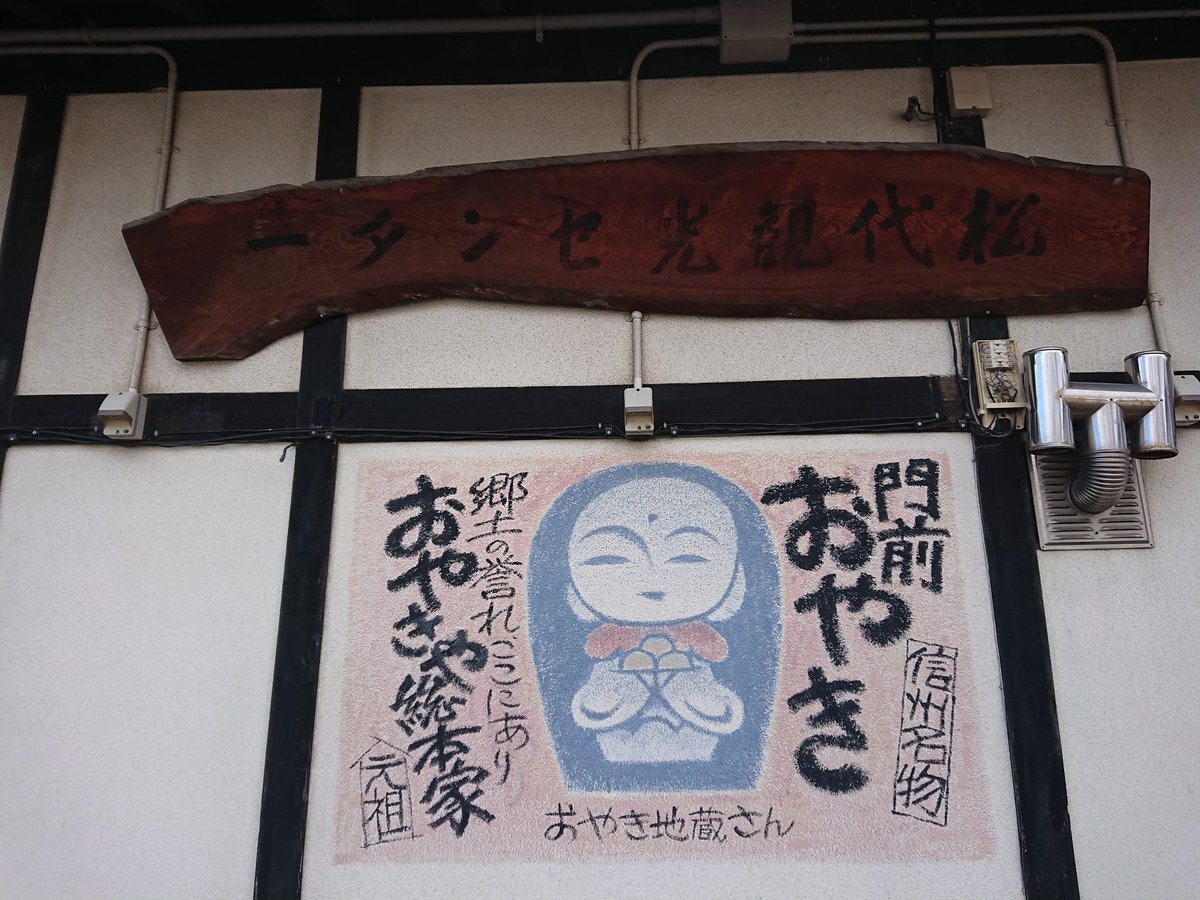 松代観光センター
門前
おやき
信州名物
郷土の誉れここにあり
おやきや総本家
元祖
おやき地蔵さん